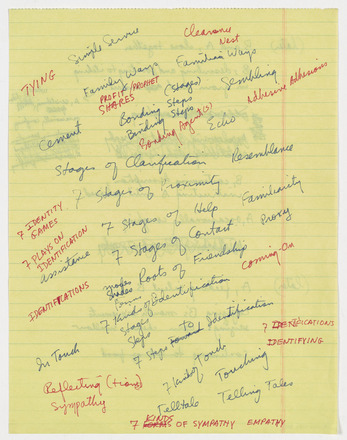 Simple Service
Clearance
Nest
TYING
Family Ways
Families Ways
PROFIT/PROPHET
SHARES
Bonding (Stages)
Sembling
Bonding Steps
Adhesive Adhesions
Cement
Bonding Steps
Bonding Agent(s)
Echo
Stages of Clarification
Resemblance
7 Stages of Proximity
7 IDENTITY
GAMES
7 Stages of Help
Familiarity
7 PLAYS ON
IDENTIFICATION
7 Stages of Contact
Proxy
assistance
Roots of Friendship
Coming On
Shades
IDENTIFICATIONS
7 Kind of Identification
Stages
Steps
7 Steps Toward To Identification
7 IDENTIFICATIONS
In Touch
IDENTIFYING
7 Kind of Touch
Touching
Reflecting (tion)
Sympathy
Telltale
Telling Tales
7 KINDS OF SYMPATHY EMPATHY